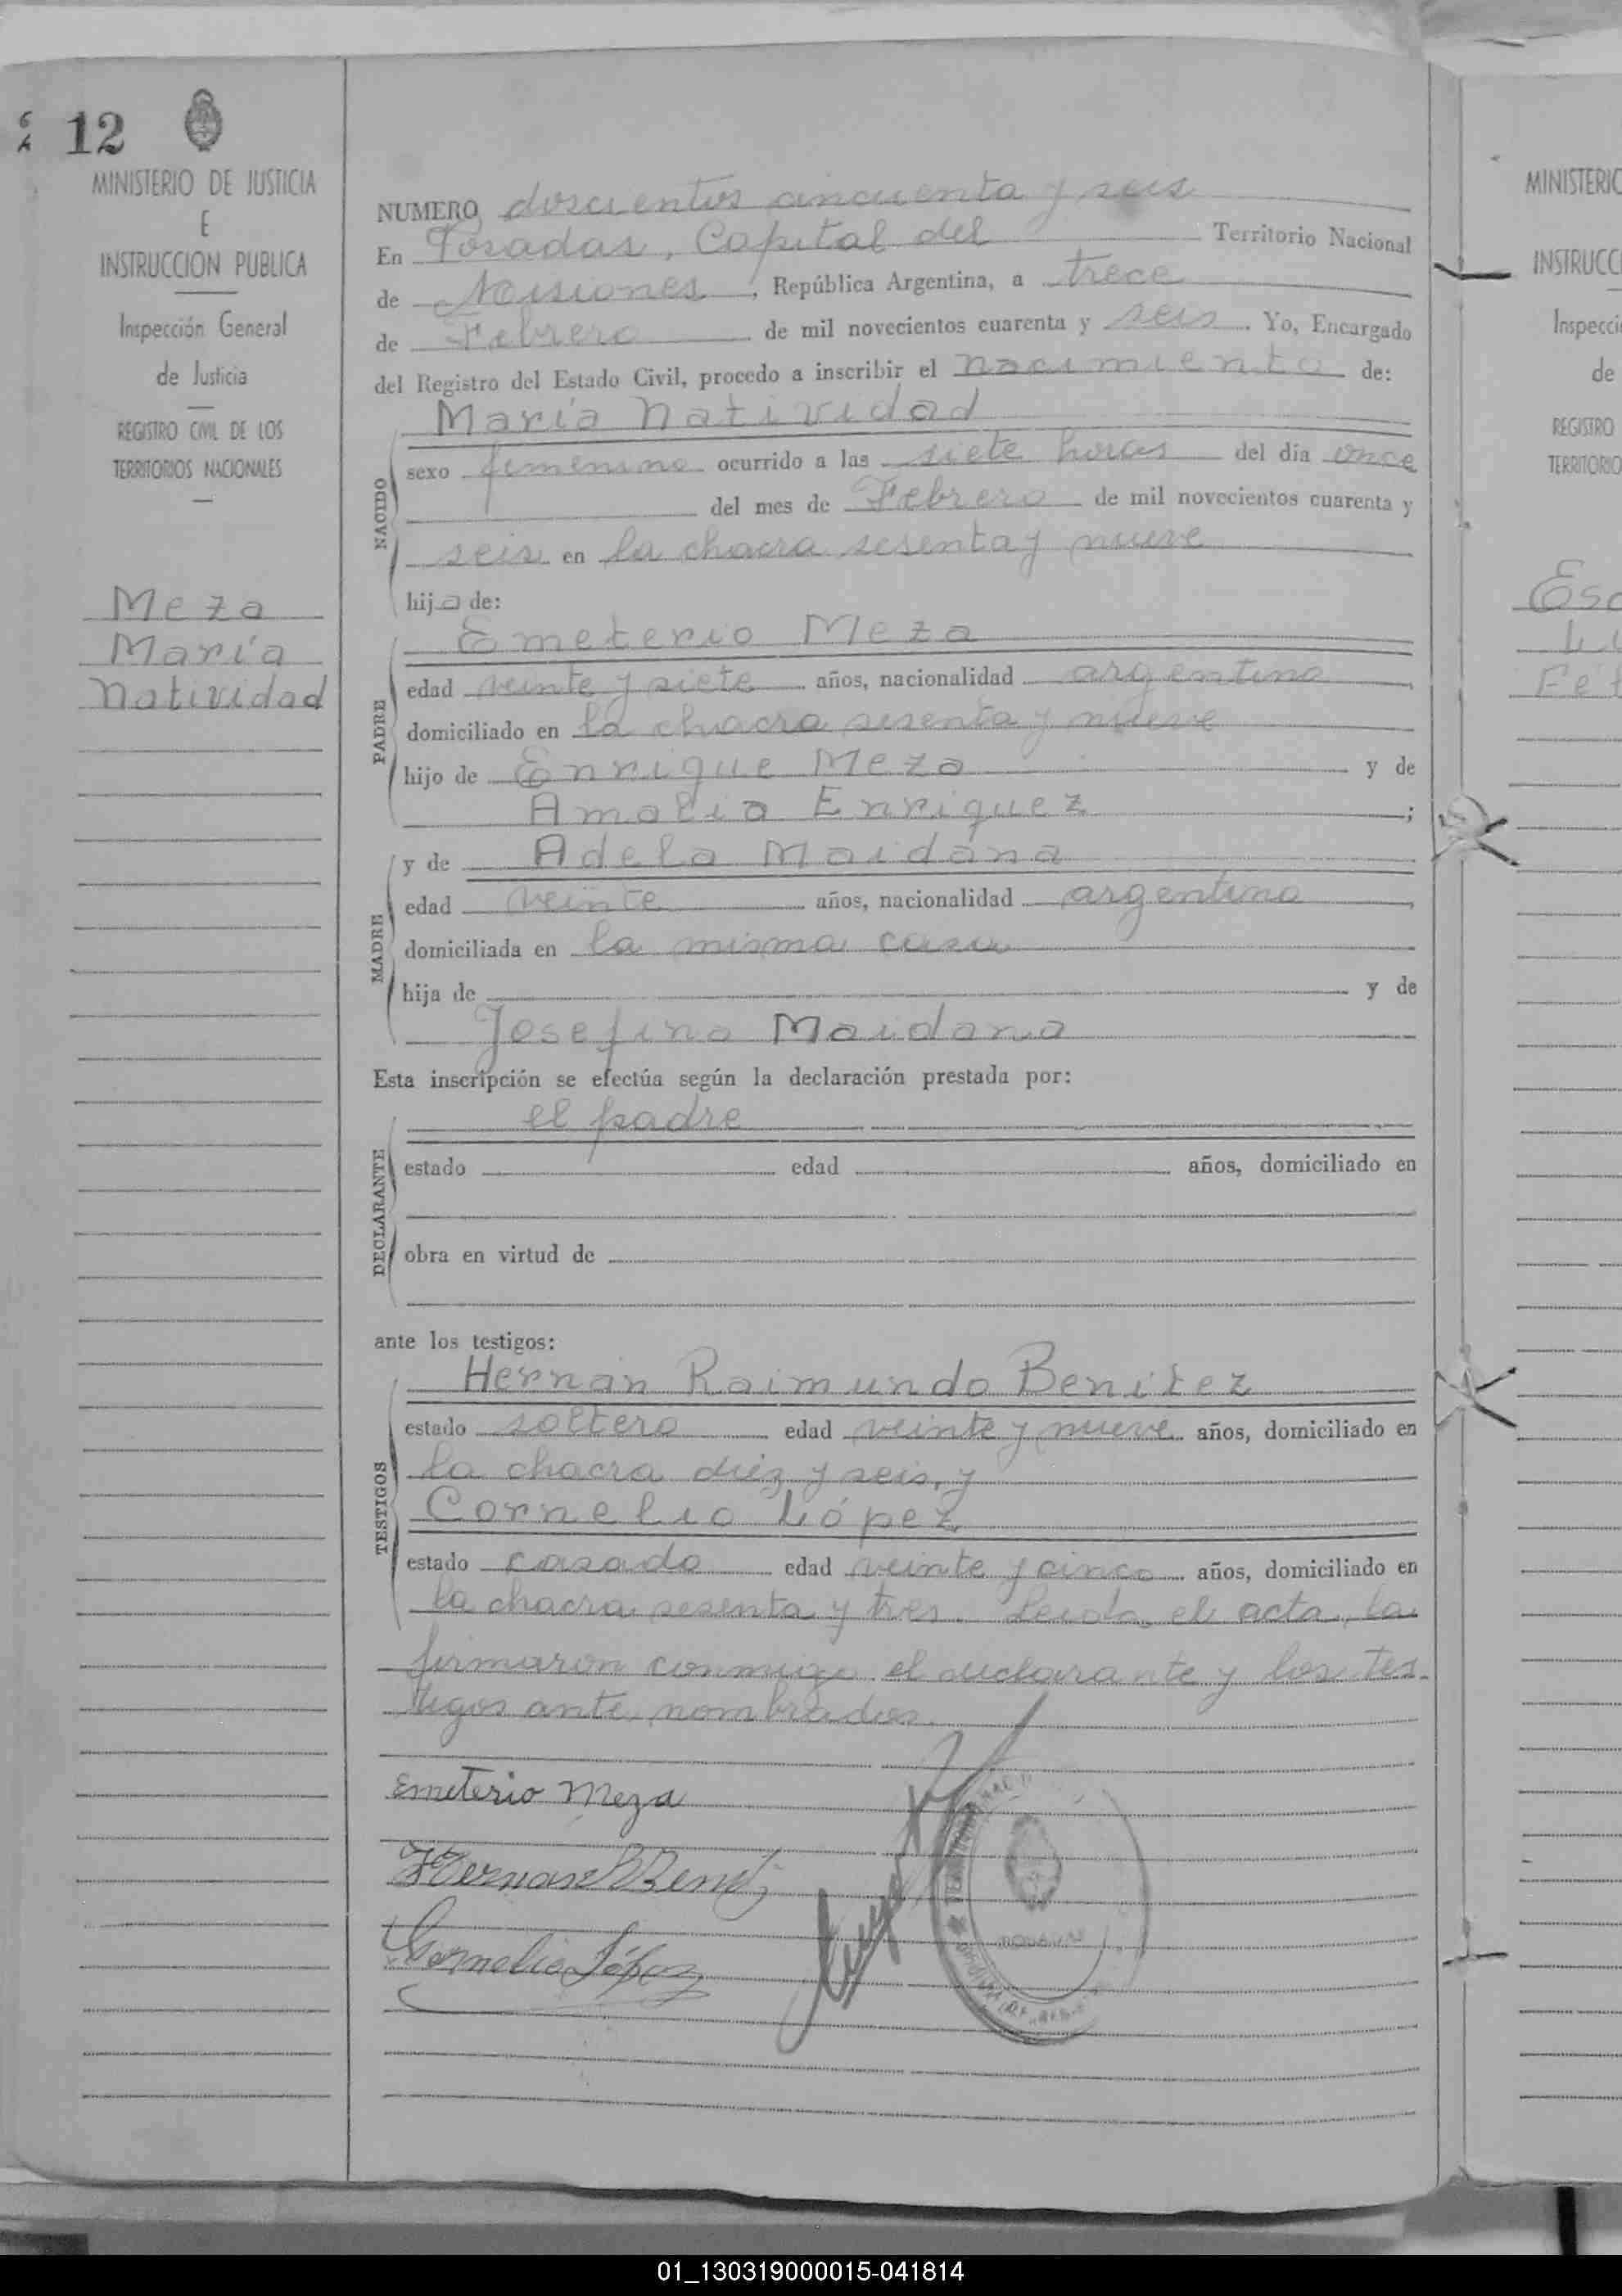 12
MINISTERIO DE JUSTICIA
E
INSTRUCCION PUBLICA
Inspección General
de Justicia
REGISTRO CIVIL DE LOS
TERRITORIOS NACIONALES
Meza
María
Natividad
NUMERO doscientos cincuenta y seis
En Posadas, Capital del Territorio Nacional
de Misiones, República Argentina, a trece
de Febrero de mil novecientos cuarenta y seis. Yo, Encargado
del Registro del Estado Civil, procedo a inscribir el nacimiento de:
NACIDO
María Natividad
sexo femenino ocurrido a las siete horas del día once
del mes de Febrero de mil novecientos cuarenta y
seis en la chacra sesenta y nueve
hija de:
PADRE
Emeterio Meza
edad veinte y siete años, nacionalidad argentino
domiciliado en la chacra sesenta y nueve
hijo de Enrique Meza y de
Amalia Enriquez ;
MADRE
y de Adela Maidana
edad veinte años, nacionalidad argentina
domiciliada en la misma casa
hija de y de
Josefina Maidana
Esta inscripción se efectúa según la declaración prestada por:
DECLARANTE
el padre
estado edad años, domiciliado en
obra en virtud de
ante los testigos:
TESTIGOS
Hernán Raimundo Benitez
estado soltero edad veinte y nueve años, domiciliado en
la chacra diez y seis, y
Cornelio López
estado casado edad veinte y cinco años, domiciliado en
la chacra sesenta y tres. Leida el acta, la
firmaron conmigo el declarante y los tes-
tigos ante nombrados.
Emeterio Meza
Hernan R Beniz
Cornelio López
POSADAS
MINISTERIO
INSTRUCC
Inspecci
de
REGISTRO
TERRITORIO
01_130319000015-041814